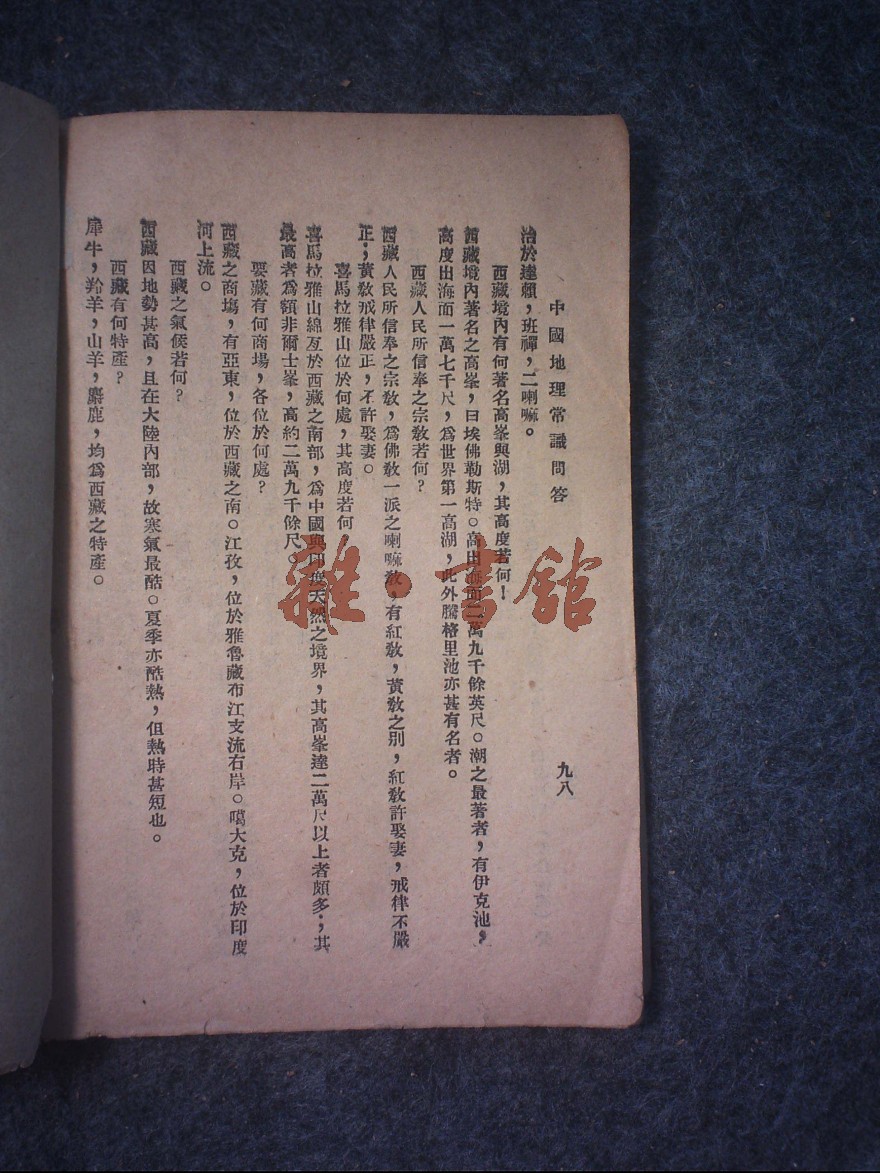 中國地理常識問答
九八
治於達賴，班禪，二喇嘛。
西藏境內有何著名高峯與湖，其高度若何！
西藏境內著名之高峯，曰埃佛勒斯特。高出海面二萬九千餘英尺。潮之最著者，有伊克池，
高度出海面一萬七千尺，爲世界第一高湖，此外騰格里池亦甚有名者。
西藏人民所信奉之宗教若何？
西藏人民所信奉之宗教，爲佛教一派之喇嘛教，有紅教，黃教之別，紅教許娶妻，戒律不嚴
正；黃教戒律嚴正，不許娶妻。
喜馬拉雅山位於何處，其高度若何
喜馬拉雅山綿亙於西藏之南部，爲中國與印度天然之境界，其高峯達二萬尺以上者頗多；其
最高者爲額非爾士峯，高約二萬九千餘尺。
藏有何商場，各位於何處？
西藏之商塲，有亞東，位於西藏之南。江孜，位於雅魯藏布江支流右岸。噶大克，位於印度
河上流。
西藏之氣候若何？
西藏因地勢甚高，且在大陸內部，故寒氣最酷。夏季亦酷熱，但熱時甚短也。
西藏有何特產？
犀牛，羚羊，山羊，麝鹿，均爲西藏之特產。
雜·書館